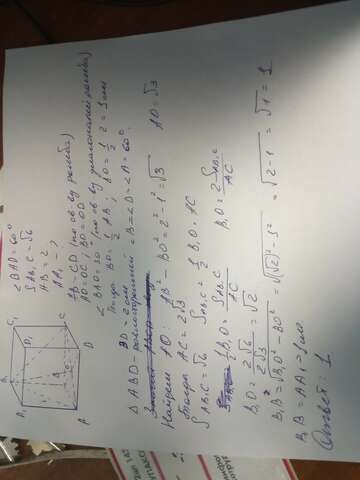 ∠BAD = 60°
S AB₁C = √6
AB = 2
AA₁ - ?
AB = CD (по св-ву ромба)
AO = OC; BO = OD
∠BAO = 30° (по св-ву диагоналей ромба)
Тогда BO = 1/2 AB; BO = 1/2 · 2 = 1 см
BD = 2 см
ΔABD - равносторонний ∠B = ∠D = ∠A = 60°
Найдём AO: AB² - BO² = 2² - 1² = √3 AO = √3
Тогда AC = 2√3
S AB₁C = √6 S AB₁C = 1/2 B₁O · AC
1/2 B₁O = S AB₁C / AC B₁O = 2S AB₁C / AC
B₁O = 2√6 / 2√3 = √2
B₁B = √B₁O² - BO² = √(√2)² - 1² = √2 - 1 = √1 = 1
B₁B = AA₁ = 1 см
Ответ: 1
A₁
B₁
C₁
D₁
A
D
C